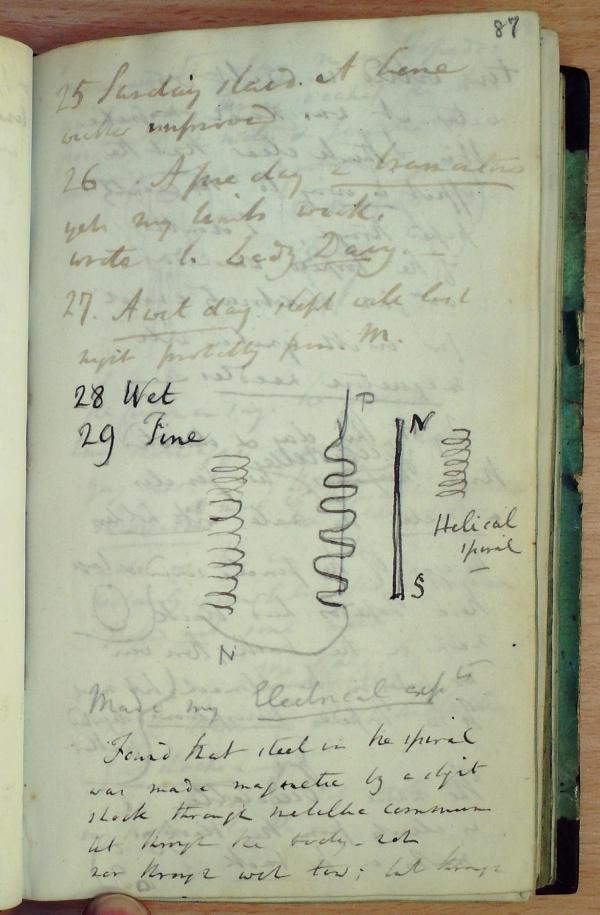 87
25 Sunday Hard. A fine
rather improved
26 A fine day &
yet my limbs weak.
wrote to Lady Davy.
27. A wet day. slept well last
night probably from M.
28 Wet
29 Fine
P
N
S
Helical
spiral
N
Made my Electrical expts
Found that steel in the spiral
was made magnetic by a slight
shock through metallic commun
but through the body. not
nor through wet tow; but through